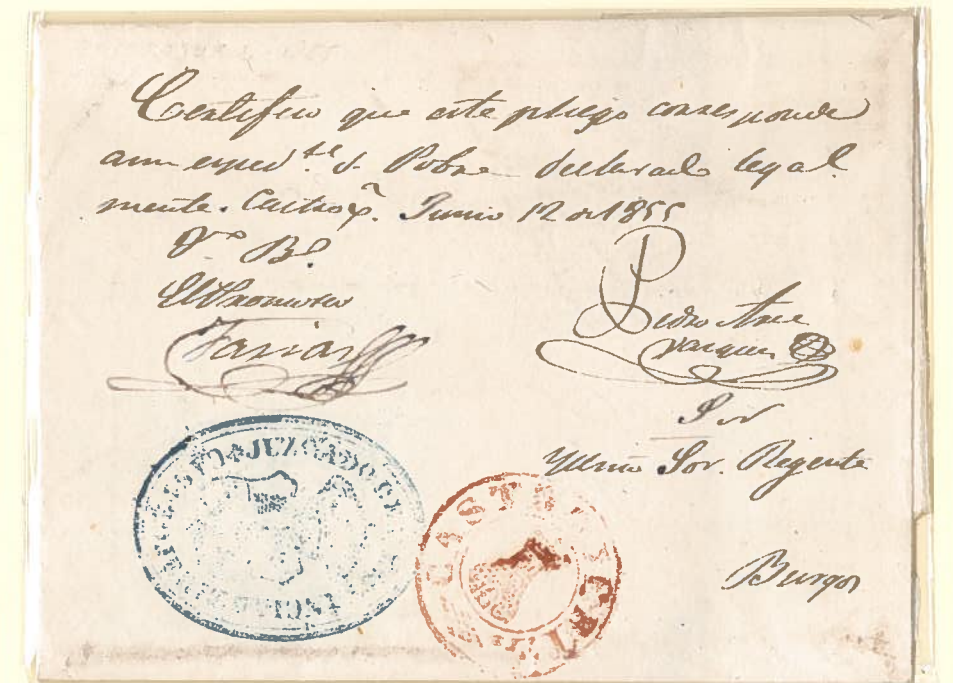 Certifico que este pliego corresponde
a un exped.te de Pobre declarado legal
mente. Castrox. Junio 12 de 1855
Vo Bo
El Promotor
Farias
Pedro
Vazquez
Sor
Yllmo Sor. Regente
Burgos
JUZGADO DE
CAST